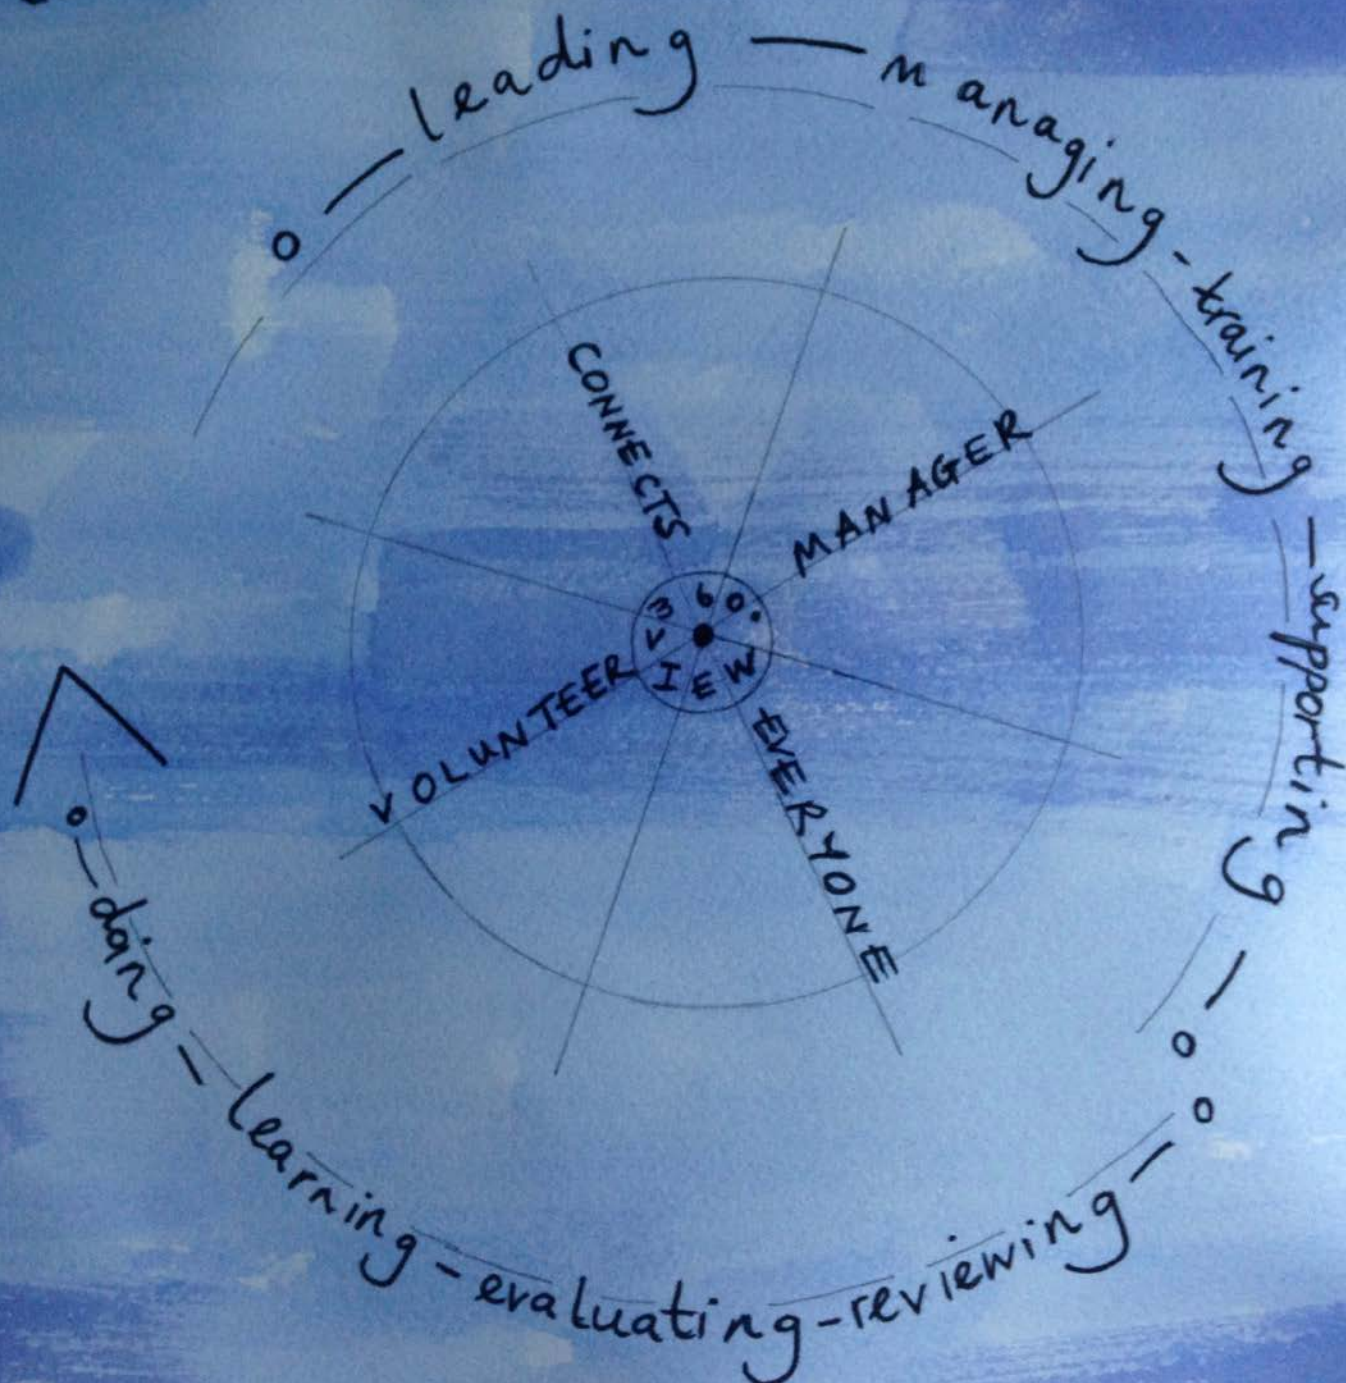 o — leading — managing - training — supporting — o
o — doing — learning - evaluating - reviewing — o
CONNECTS
MANAGER
360°
VIEW
VOLUNTEER
EVERYONE